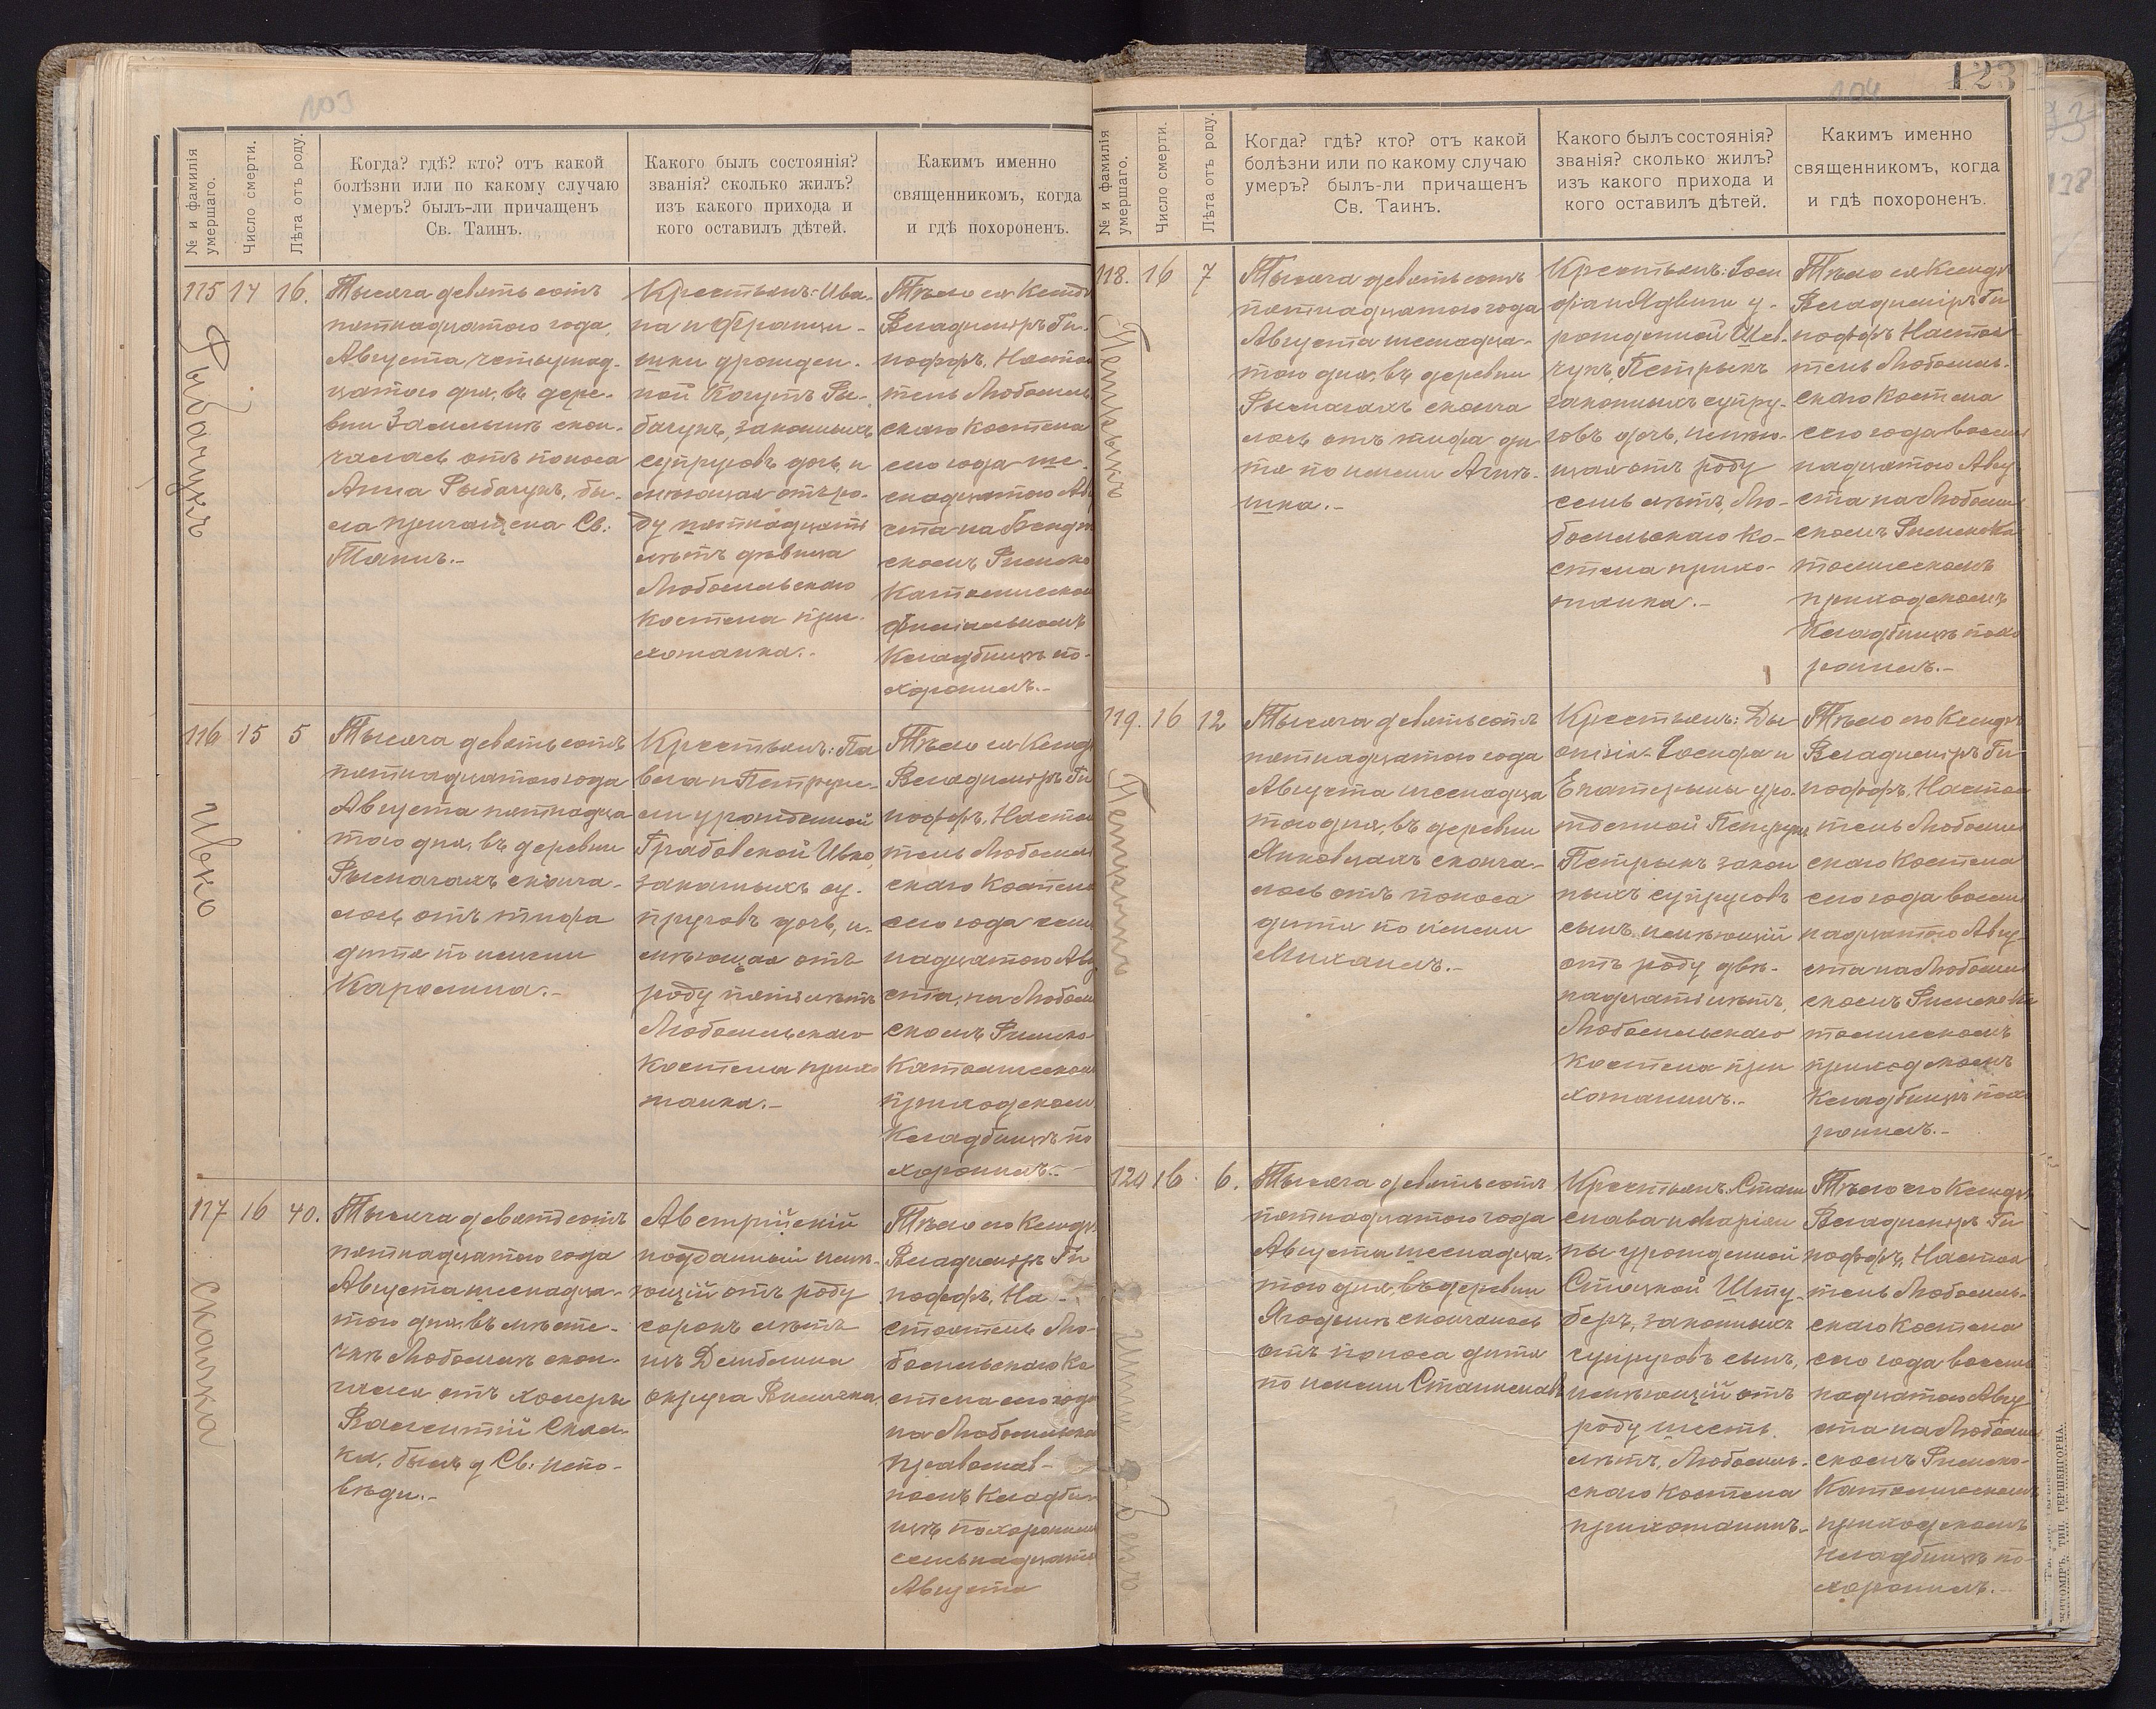 103
№ и фамилія умершаго.
Число смерти.
Лѣта отъ роду.
Когда? гдѣ? кто? отъ какой
болѣзни или по какому случаю
умеръ? былъ-ли причащенъ
Св. Таинъ.
Какого былъ состоянія?
званія? сколько жилъ?
изъ какого прихода и
кого оставилъ дѣтей.
Какимъ именно
священникомъ, когда
и гдѣ похороненъ.
115
Рыбачукъ
14
16.
Тысяча девятьсотъ
пятнадцатого года
Августа четырнад-
цатого дня, въ дере-
вни скон-
чалась отъ поноса
Анна Рыбачукъ, бы-
ла причащена Св:
Таинъ.-
Крестьянъ: Ива-
на и Францы-
шки урожден-
ной Ры-
бачукъ, законныхъ
супруговъ дочь, и
мѣющая отъ ро-
ду пятнадцать
лѣтъ дѣвица
Любомльскаго
Костела при-
хожанка.-
Тѣло ея Ксендзъ
Владиміръ Ги-
поффъ, Настоя
тель Любомль
скаго Костела
сего года ше-
снадцатого Авг
ста на
скомъ Римско
Католическом
филіальномъ
Кладбищѣ по-
хоронилъ.-
116
Ивко
15
5
Тысяча девятьсотъ
пятнадцатого года
Августа пятнадца
того дня, въ деревни
Рымачахъ сконча-
лось отъ тифа
дитя по имени
Каролина.-
Крестьянъ: Па
вла и Петруне-
ли урожденной
Грабовской Ивко,
законныхъ су-
пруговъ дочь, и-
мѣющая отъ
роду пять лѣтъ
Любомльскаго
Костела прихо
жанка.-
Тѣло ея Ксендз
Владиміръ Ги
поффъ, Настоя
тель Любомль
скаго Костела
сего года семь
надцатого Авг
ста, на Любомль
скомъ Римско
Католическом
приходскомъ
Кладбищѣ по
хоронилъ.-
117
Скалка
16
40.
Тысяча девятьсотъ
пятнадцатого года
Августа шеснадца-
того дня, въ мѣсте-
чкѣ Любомлѣ скон-
чался отъ холеры
Валентій Скал-
ка, былъ у Св: испо-
вѣди.-
Австрійскій
подданный имѣ-
ющій отъ роду
сорокъ лѣтъ
изъ
округа Величка.
Тѣло его Ксендз
Владиміръ Ги
поффъ, На-
стоятель Лю-
бомльскаго Ко
стела сего года
на Любомльско
Православ-
номъ Кладби
щѣ похоронилъ
семьнадцатого
Августа
123
104
№ и фамилія умершаго.
Число смерти.
Лѣта отъ роду.
Когда? гдѣ? кто? отъ какой
болѣзни или по какому случаю
умеръ? былъ-ли причащенъ
Св. Таинъ.
Какого былъ состоянія?
званія? сколько жилъ?
изъ какого прихода и
кого оставилъ дѣтей.
Какимъ именно
священникомъ, когда
и гдѣ похороненъ.
118.
Петрыкъ
16
7
Тысяча девятьсотъ
пятнадцатого года
Августа шеснадца-
того дня, въ деревни
Рымачахъ сконча
лось отъ тифа ди
тя по имени
Крестьянъ: Іоси
фа и Ядвиги у-
рожденной Шев-
чукъ, Петрыкъ
законныхъ супру-
говъ дочь, имѣю-
щая отъ роду
семь лѣтъ, Лю-
бомльскаго Ко-
стела прихо-
жанка.-
Тѣло ея Ксендз
Владиміръ Ги
поффъ Настоя-
тель Любомль-
скаго Костела
сего года восемь
надцатого Авгу
ста на Любомль
скомъ Римско Ка
толическомъ
приходскомъ
Кладбищѣ похо
ронилъ.-
119.
Петрыкъ
16
12
Тысяча девятьсотъ
пятнадцатого года
Августа шеснадца
того дня, въ деревни
Янковцахъ сконча-
лось отъ поноса
дитя по имени
Михаилъ.-
Крестьянъ:
Іосифа и
Екатерины уро-
жденной
Петрыкъ закон
ныхъ супруговъ
сынъ, имѣющій
отъ роду двѣ-
надцать лѣтъ,
Любомльскаго
Костела при
хожанинъ.-
Тѣло его Ксендзъ
Владиміръ Ги
поффъ, Настоя
тель Любомль
скаго Костела
сего года восемь
надцатого Авгу-
ста на Любомль
скомъ Римско Ка
толическомъ
приходскомъ
Кладбищѣ похо
ронилъ.-
120
16
6.
Тысяча девятьсотъ
пятнадцатого года
Августа шеснадца-
того дня, въ деревни
Ягодынѣ скончалось
отъ поноса дитя
по имени Станиславъ
Крестьянъ: Стани
слава и Маріан
ны урожденной
Шту-
беръ, законныхъ
супруговъ сынъ,
имѣющій отъ
роду шесть
лѣтъ, Любомль-
скаго Костела
прихожанинъ.-
Тѣло его Ксендзъ
Владиміръ Ги
поффъ, Настоя
тель Любомль-
скаго Костела
сего года восемь
надцатого Авгу
ста на Любомль
скомъ Римско-
Католическомъ
приходскомъ
кладбищѣ по-
хоронилъ.-
ЖИТОМІРЪ. ТИП. ГЕРШЕНГОРНА.
138